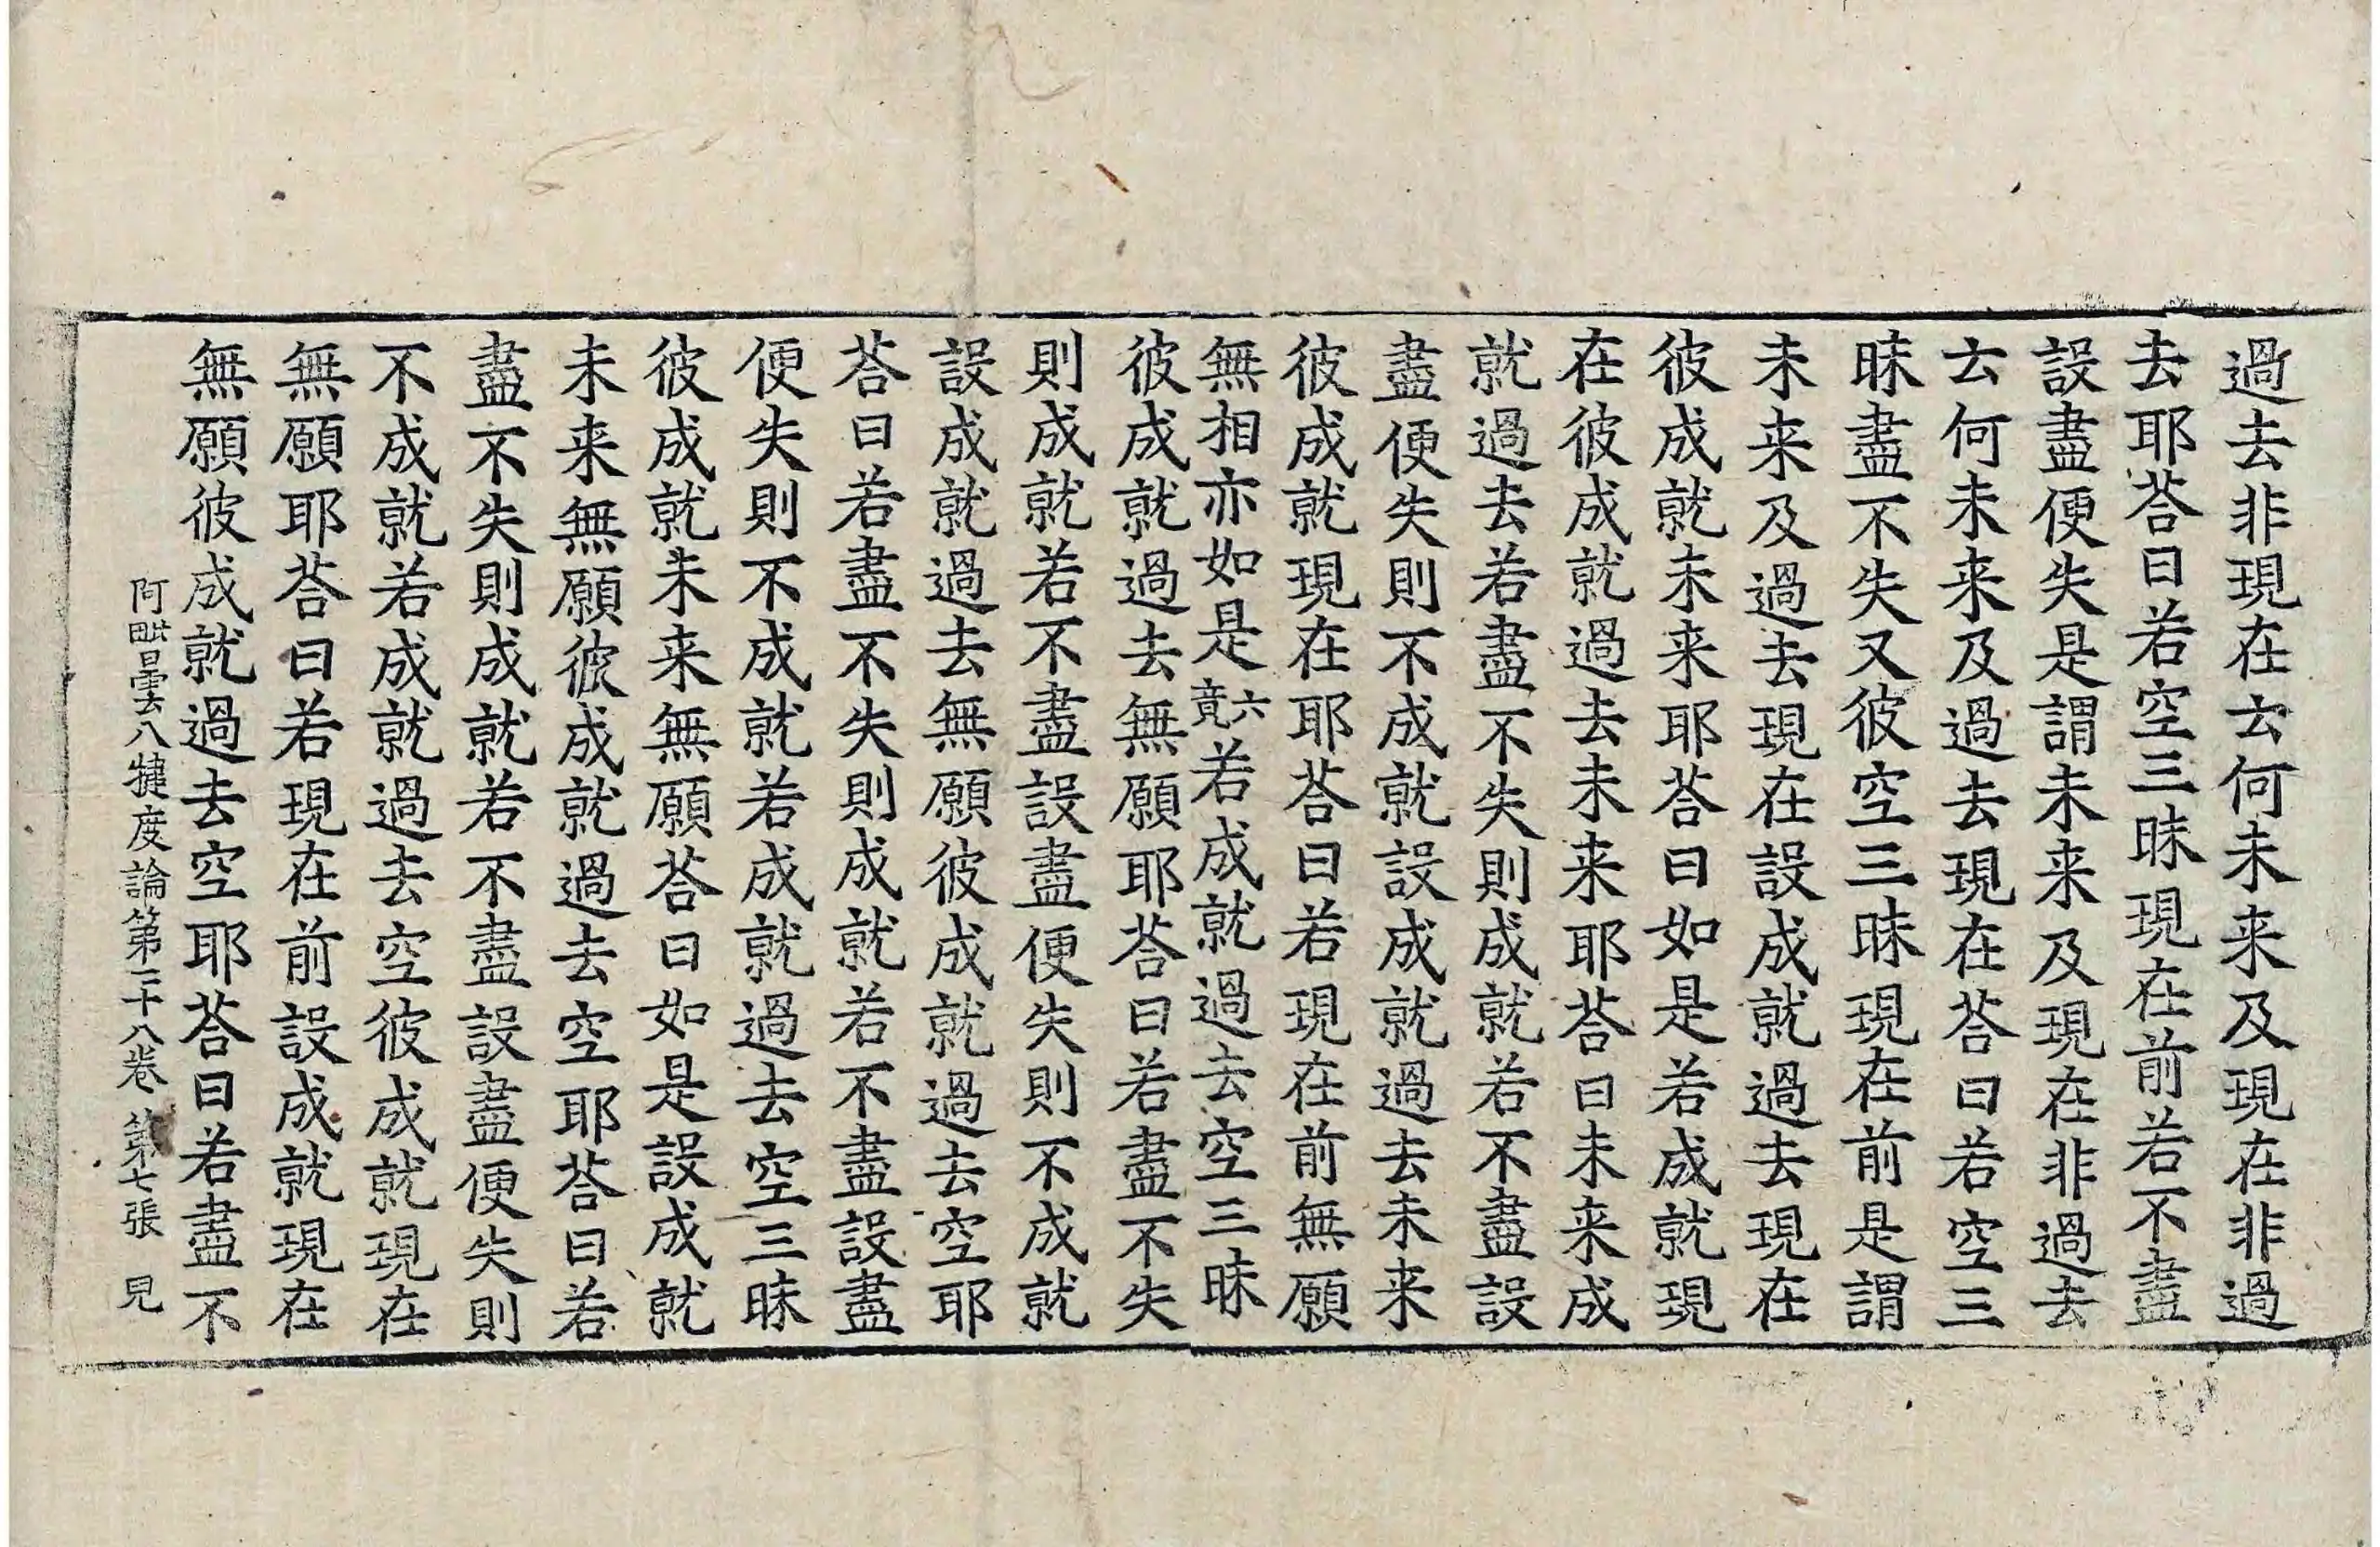 過去非現在云何未来及現在非過
去耶荅曰若空三昧現在前若不盡
設盡便失是謂未来及現在非過去
云何未来及過去現在荅曰若空三
昧盡不失又彼空三昧現在前是謂
未来及過去現在設成就過去現在
彼成就未来耶荅曰如是若成就現
在彼成就過去未来耶荅曰未来成
就過去若盡不失則成就若不盡設
盡便失則不成就設成就過去未来
彼成就現在耶荅曰若現在前無願
無相亦如是六竟若成就過去空三昧
彼成就過去無願耶荅曰若盡不失
則成就若不盡設盡便失則不成就
設成就過去無願彼成就過去空耶
荅曰若盡不失則成就若不盡設盡
便失則不成就若成就過去空三昧
彼成就未来無願荅曰如是設成就
未来無願彼成就過去空耶荅曰若
盡不失則成就若不盡設盡便失則
不成就若成就過去空彼成就現在
無願耶荅曰若現在前設成就現在
無願彼成就過去空耶荅曰若盡不
阿毗曇八犍度論第二十八卷 第七張 見